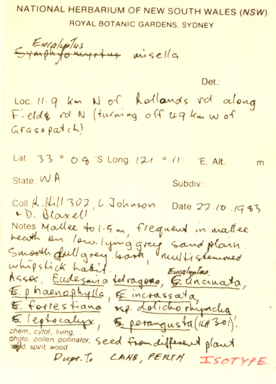 NATIONAL HERBARIUM OF NEW SOUTH WALES (NSW)
ROYAL BOTANIC GARDENS, SYDNEY
Eucalyptus
Symphyomyrtus misella
Det.:
Loc. 11.9 km N of Rollands rd along
Fields rd N (turning off 49 km W of
Grasspatch)
Lat. 33° 08 'S Long. 121° 11 'E. Alt. m
State: WA Subdiv.:
Coll. K. Hill 302, L. Johnson Date: 22.10.1983
& D. Blaxell
Notes Mallee to 1.5m, frequent in mallee
heath on low-lying grey sand plain
Smooth dull grey bark, multistemmed
whipstick habit.
Eucalyptus
Assoc. Eudesmia tetragona, E. uncinata,
E. phaenophylla, E incrassata,
E forrestiana ssp. dolichorhyncha,
E leptocalyx, E perangusta (KH 301).
chem., cytol, living,
photo, pollen, pollinator, seed from different plant
seed, spirit, wood
Dups. To CANB, PERTH ISOTYPE